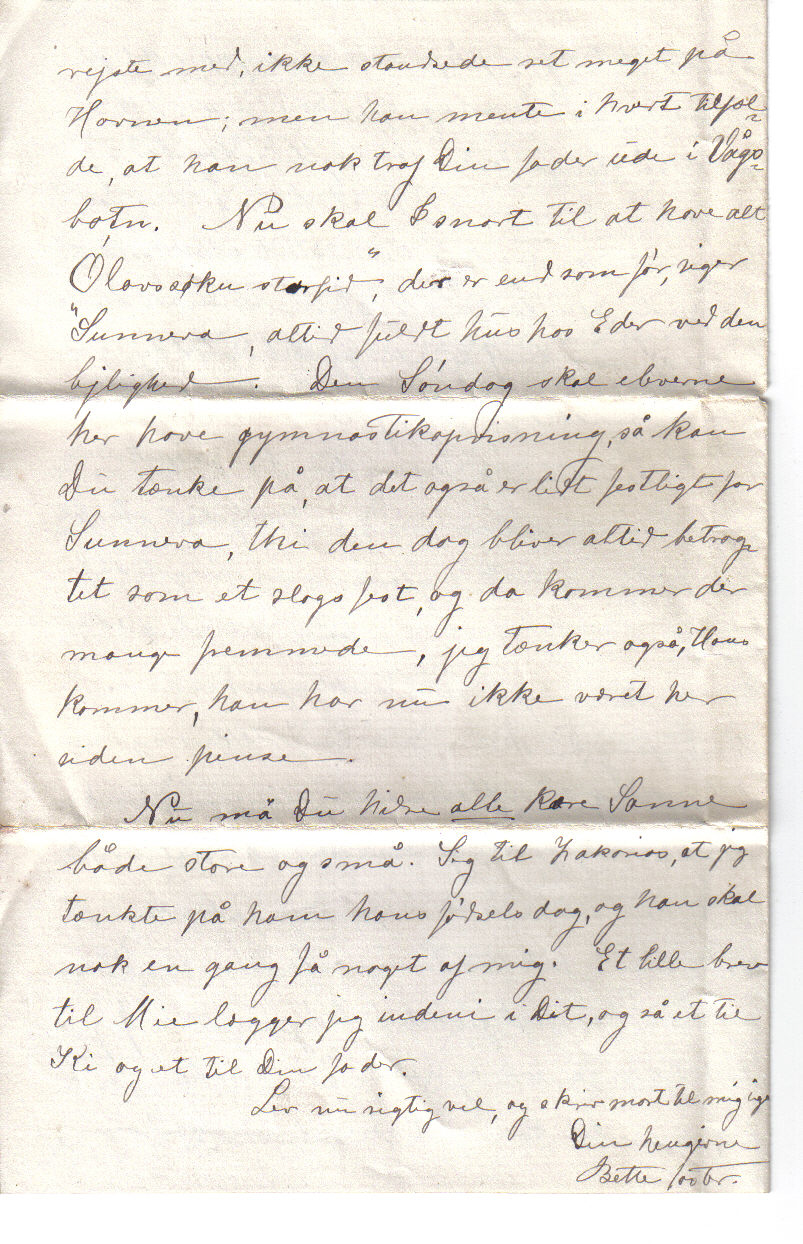 rejste med, ikke standsede ret meget på
Havnen; men han mente i hvert tilfæl-
de, at han nok traf Din fader ude i Vågs-
botn. Nu skal I snart til at have alt
Olavssøku størfid", der er end som før, siger
"Sunneva, altid fuldt hus hos Eder ved den
lejlighed. Den Søndag skal eleverne
her have gymnastikopvisning, så kan
Du tænke på, at det også er lidt festligt for
Sunneva, thi den dag bliver altid betrag-
tet som et slags fest, og da kommer der
mange fremmede, jeg tænker også, Hans
kommer, han har nu ikke været her
siden pinse.
Nu må Du hilse alle kære Sanne
både store og små. Sig til Zakarias, at jeg
tænkte på ham hans fødselsdag, og han skal
nok en gang få noget af mig. Et lille brev
til Mie lægger jeg indeni i Dit, og så et til
Ki og et til Din fader.
Lev nu rigtig vel, og skriv snart til mig ige
Din hengivne
Bette faster.